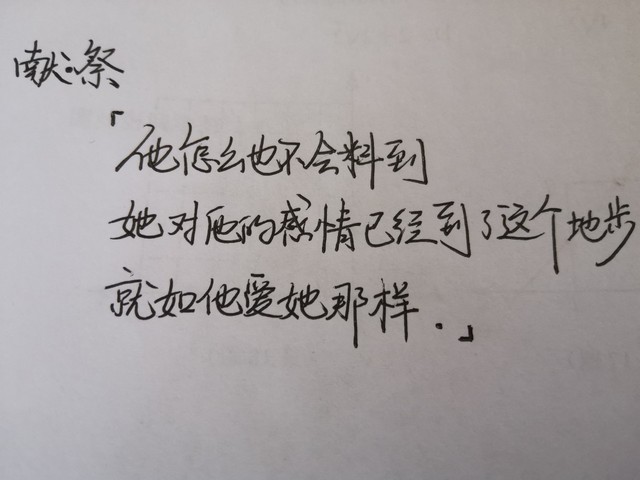 献祭
「他怎么也不会料到
她对他的感情已经到了这个地步
就如他爱她那样.」